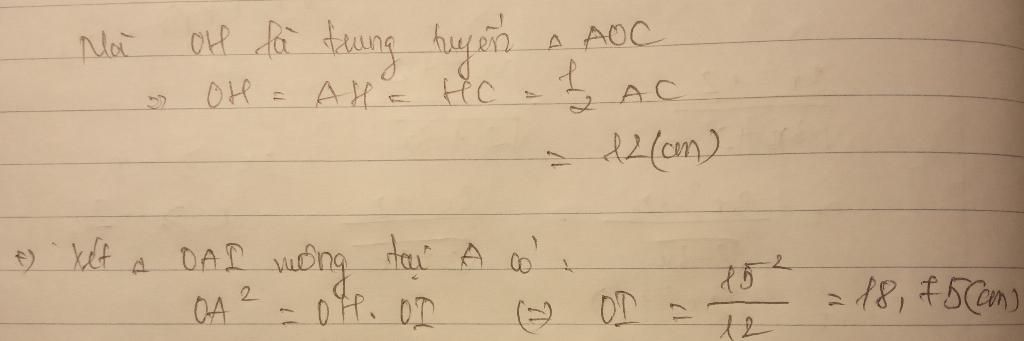 Mà OH là trung tuyến Δ AOC
=> OH = AH = HC = 1/2 AC
= 12 (cm)
+) Xét Δ OAI vuông tại A có :
OA² = OH. OI (=) OI = 15²/12 = 18,75(cm)